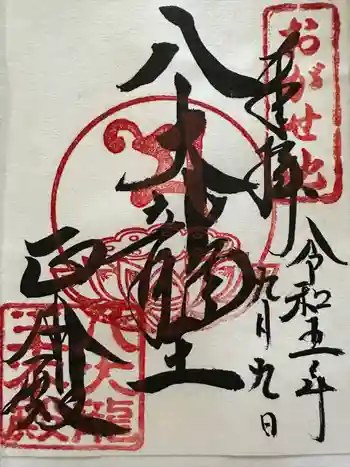 おがせ池
奉拝
令和五年
九月九日
八大龍王
正殿
八大龍
王正殿